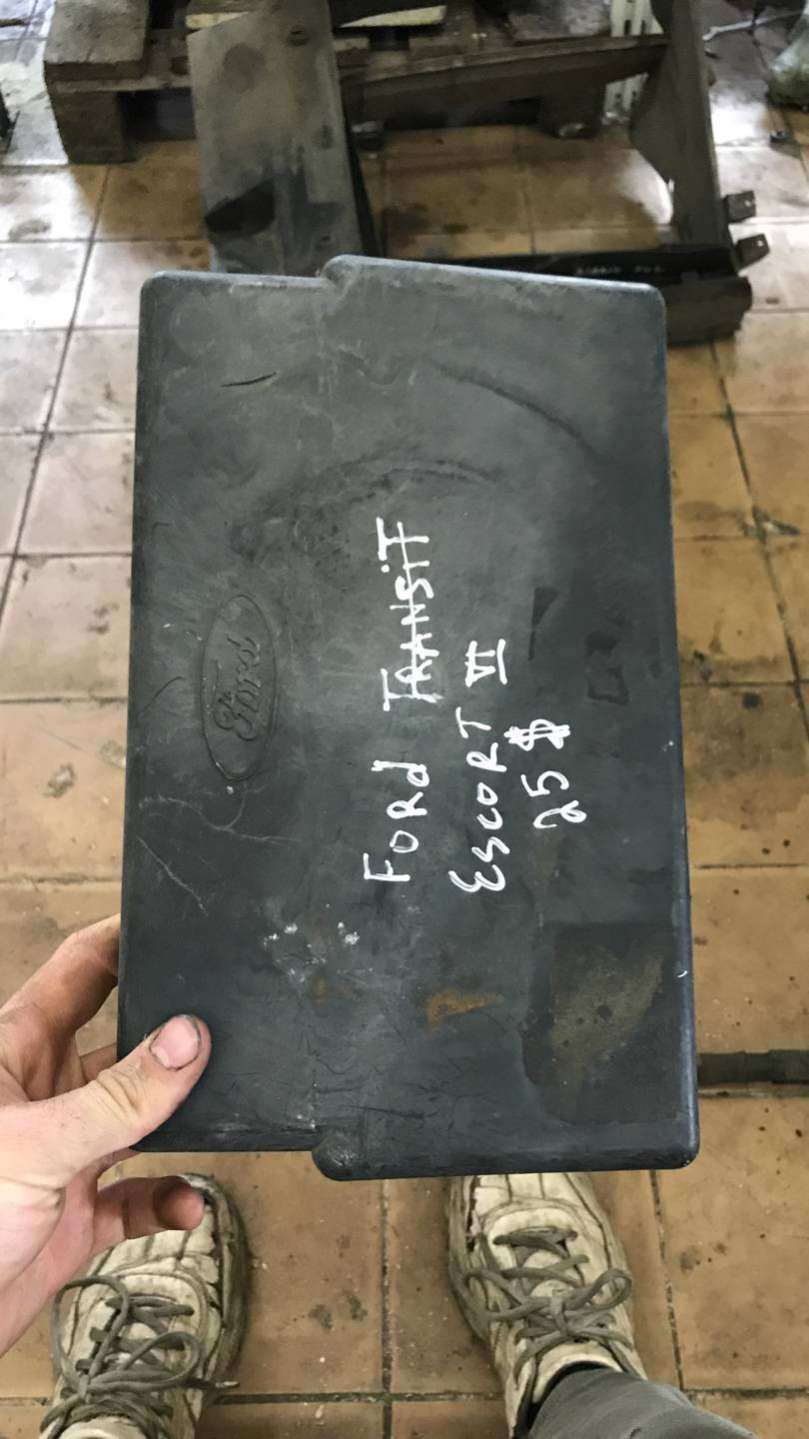 Ford
FORd TRANSiT
ESCORT VI
25 $